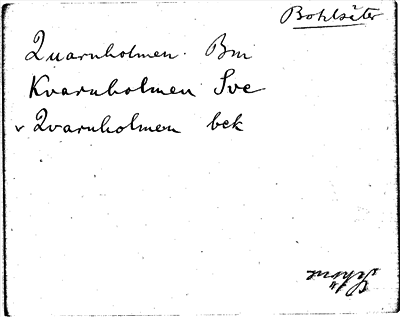 Bohlsäter
Quarnholmen. Bm
Kvarnholmen Sve
v Qvarnholmen bek